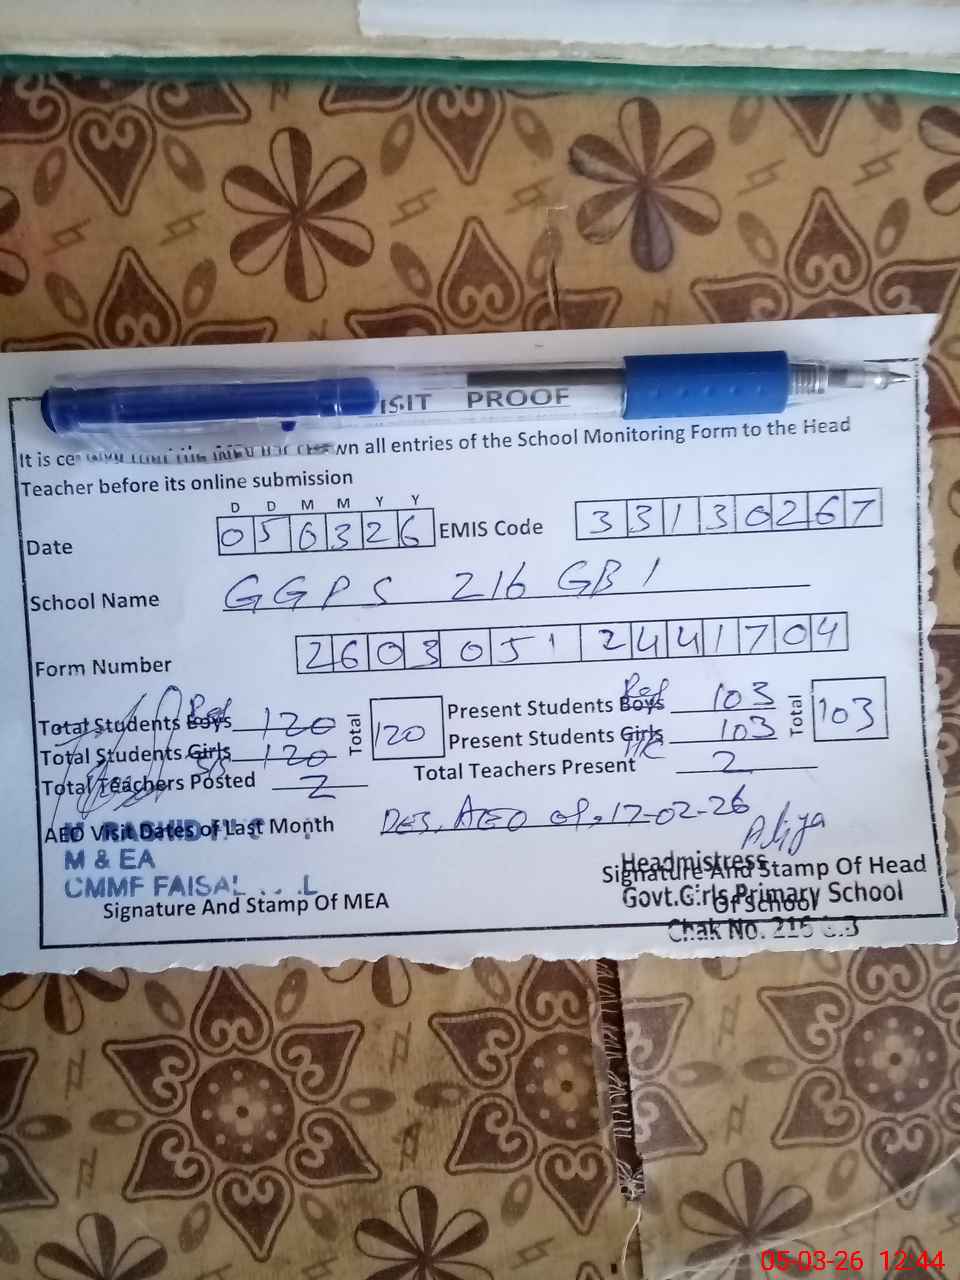 ISIT PROOF
It is ce wn all entries of the School Monitoring Form to the Head
Teacher before its online submission
D D M M Y Y
Date 0 5 0 3 2 6 EMIS Code 3 3 1 3 0 2 6 7
School Name GGPS 216 GB 1
Form Number 2 6 0 3 0 5 1 2 4 4 1 7 0 4
Total Students Boys Ref 120 Total 120 Present Students Boys Ref 103 Total 103
Total Students Girls 120 Present Students Girls HC 103
Total Teachers Posted 2 Total Teachers Present 2
AEO Visit Dates of Last Month DES, AEO 17-02-26
Aliya
M & EA
CMMF FAISAL
Signature And Stamp Of MEA
Headmistress
Signature And Stamp Of Head
Of School
Govt.Girls Primary School
Chak No. 216 G.B
05-03-26 12:44